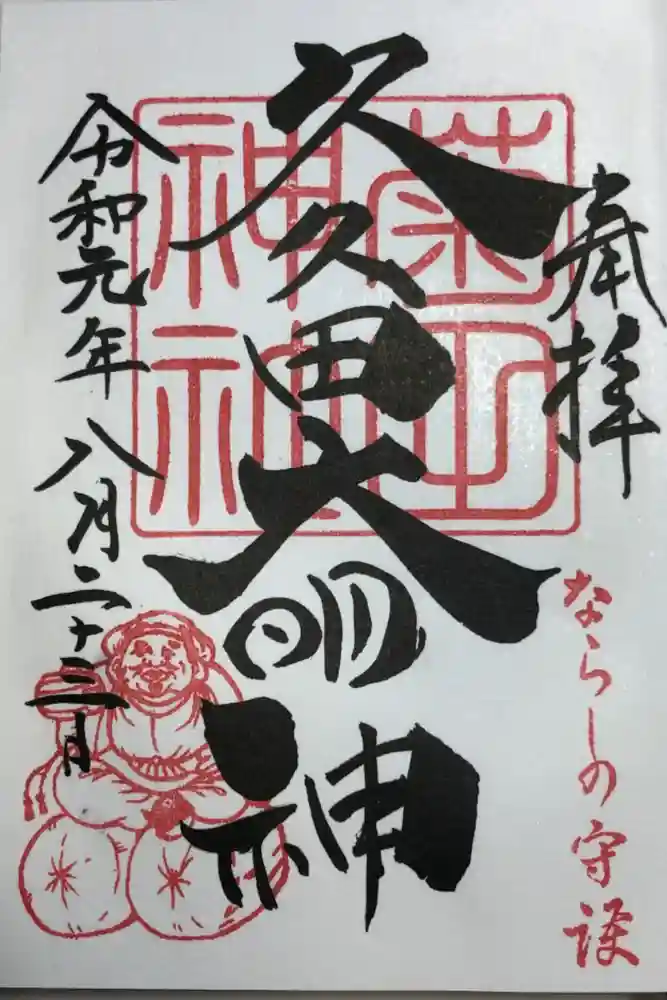 奉拝
ならしの守護
久久田大明神
菊田
神社
令和元年八月二十三日